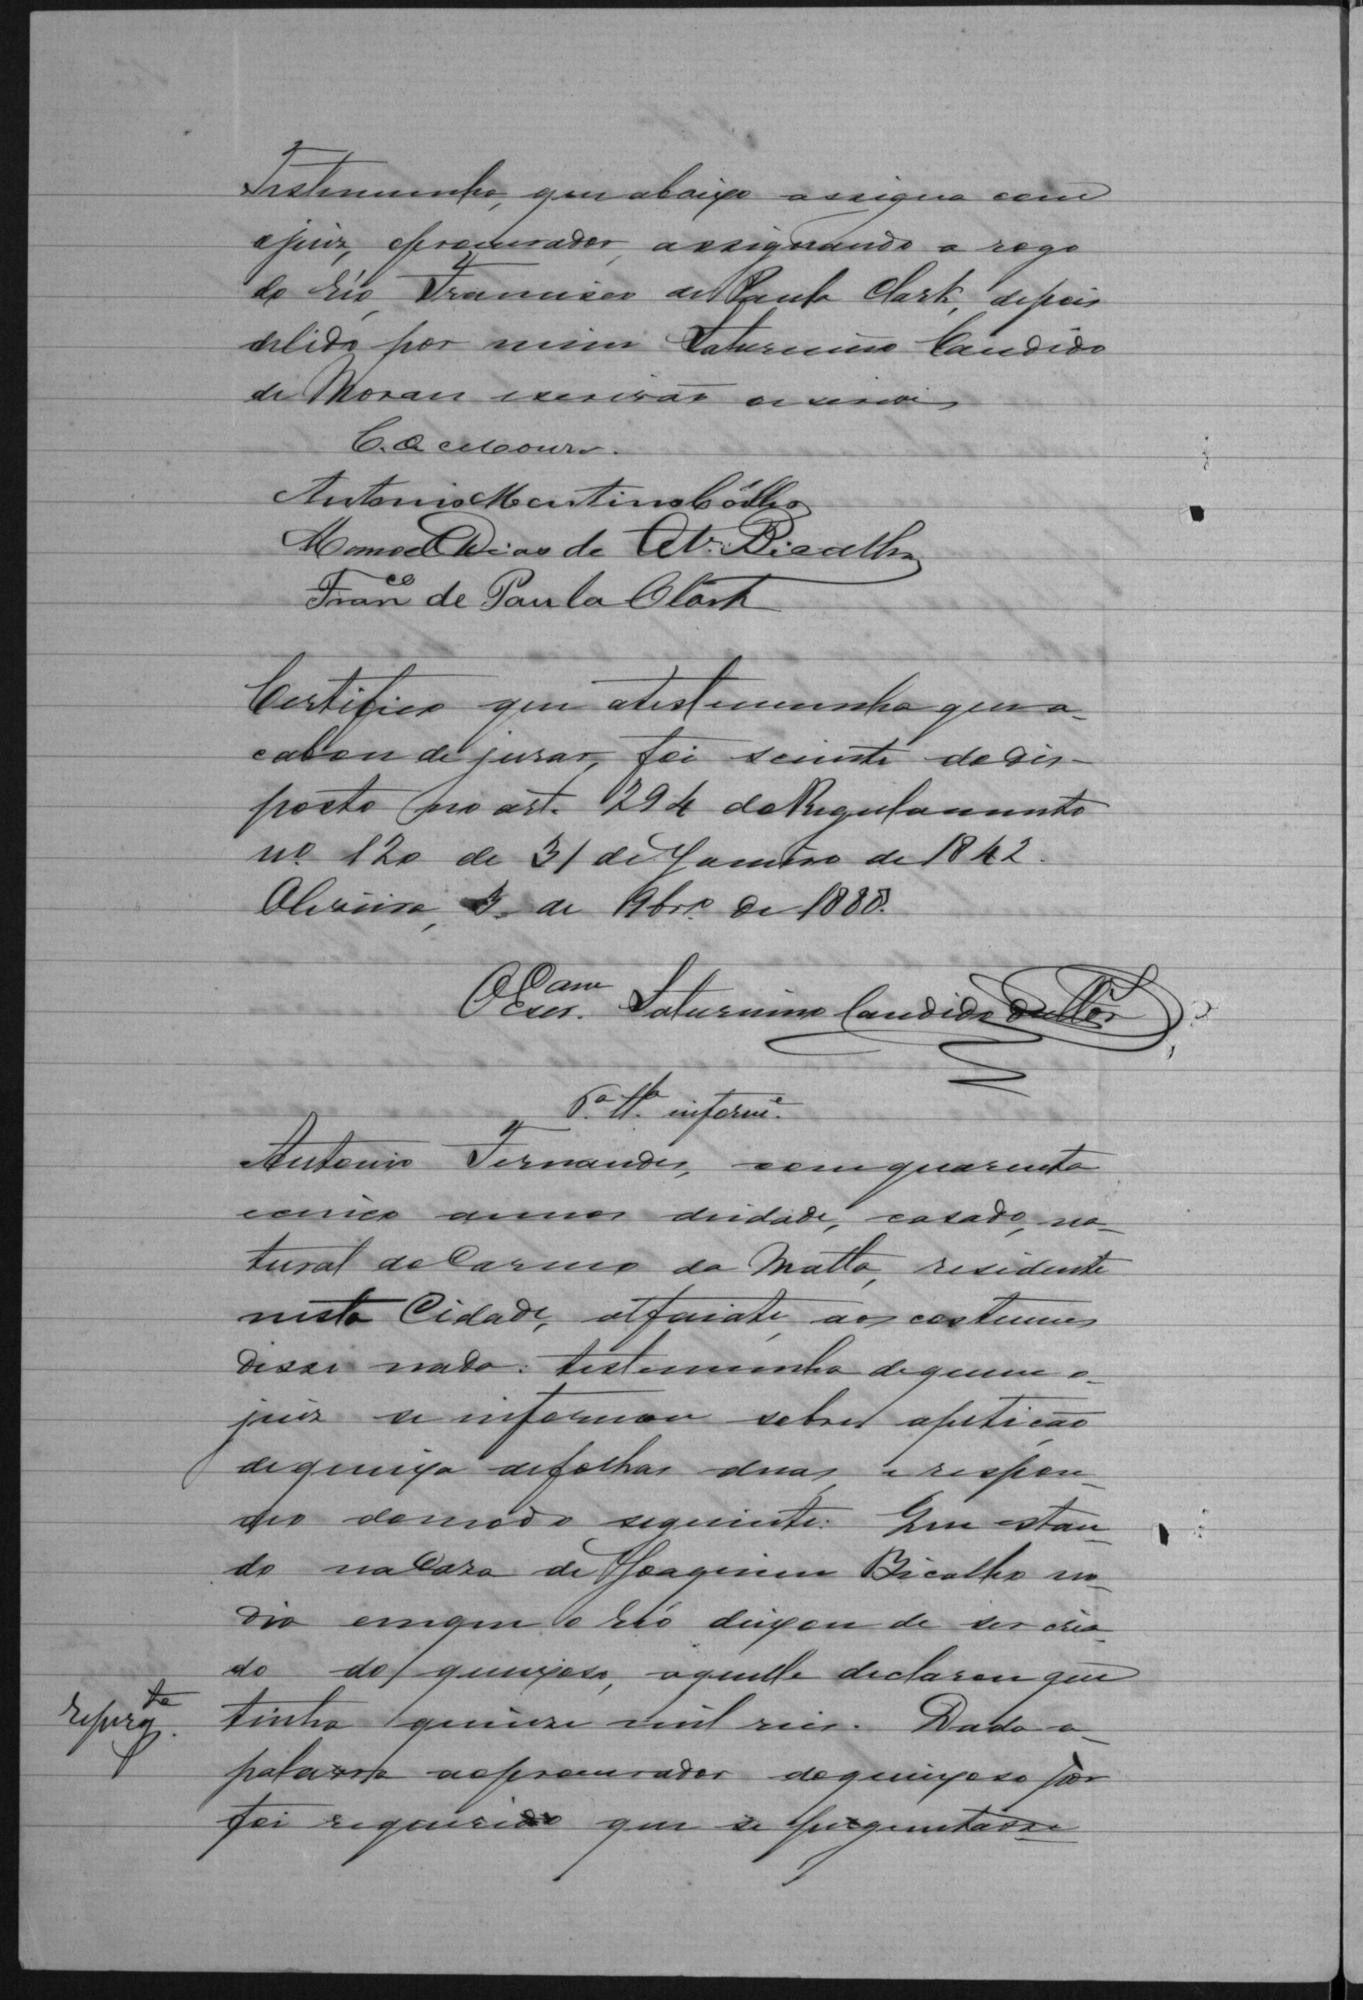 Testemunha, que abaixo assigna com
ojuiz, eprocurador, assignando a rogo
do réo, Francisco de Paula Clark, depois
delido por mim Saturnino Candido
de Moraes escrivão o escrevi
C. A. Moura.
Antonio Martins Coêlho
Manoel Dias de Bicalho
Fran.co de Paula Clark
Certifico que atestemunha que a-
cabou de jurar, foi sciente do dis-
posto no art. 294 do Regulamento
nº 120 de 31 de Janeiro de 1842.
Oliveira, 3 de de 1888.
O Esc. Saturnino Candido
6.a tt.a inform.e
Antonio Fernandes, com quarenta
ecinco annos deidade, casado, na-
tural do Carmo da Matta, residente
nesta Cidade, alfaiate, aos costumes
disse nada: testemunha dequem o
juiz se informou sobre apetição
dequeixa defolhas duas, e respon-
deo domodo seguinte: Que estan-
do na Casa de Joaquim Bicalho no
dia emque o réo deixou de ser cria-
do do queixoso, aquelle declarou que
reperg.ta
tinha quinze mil reis. Dada a
palavra aoprocurador doqueixoso por
foi requerido que se perguntasse